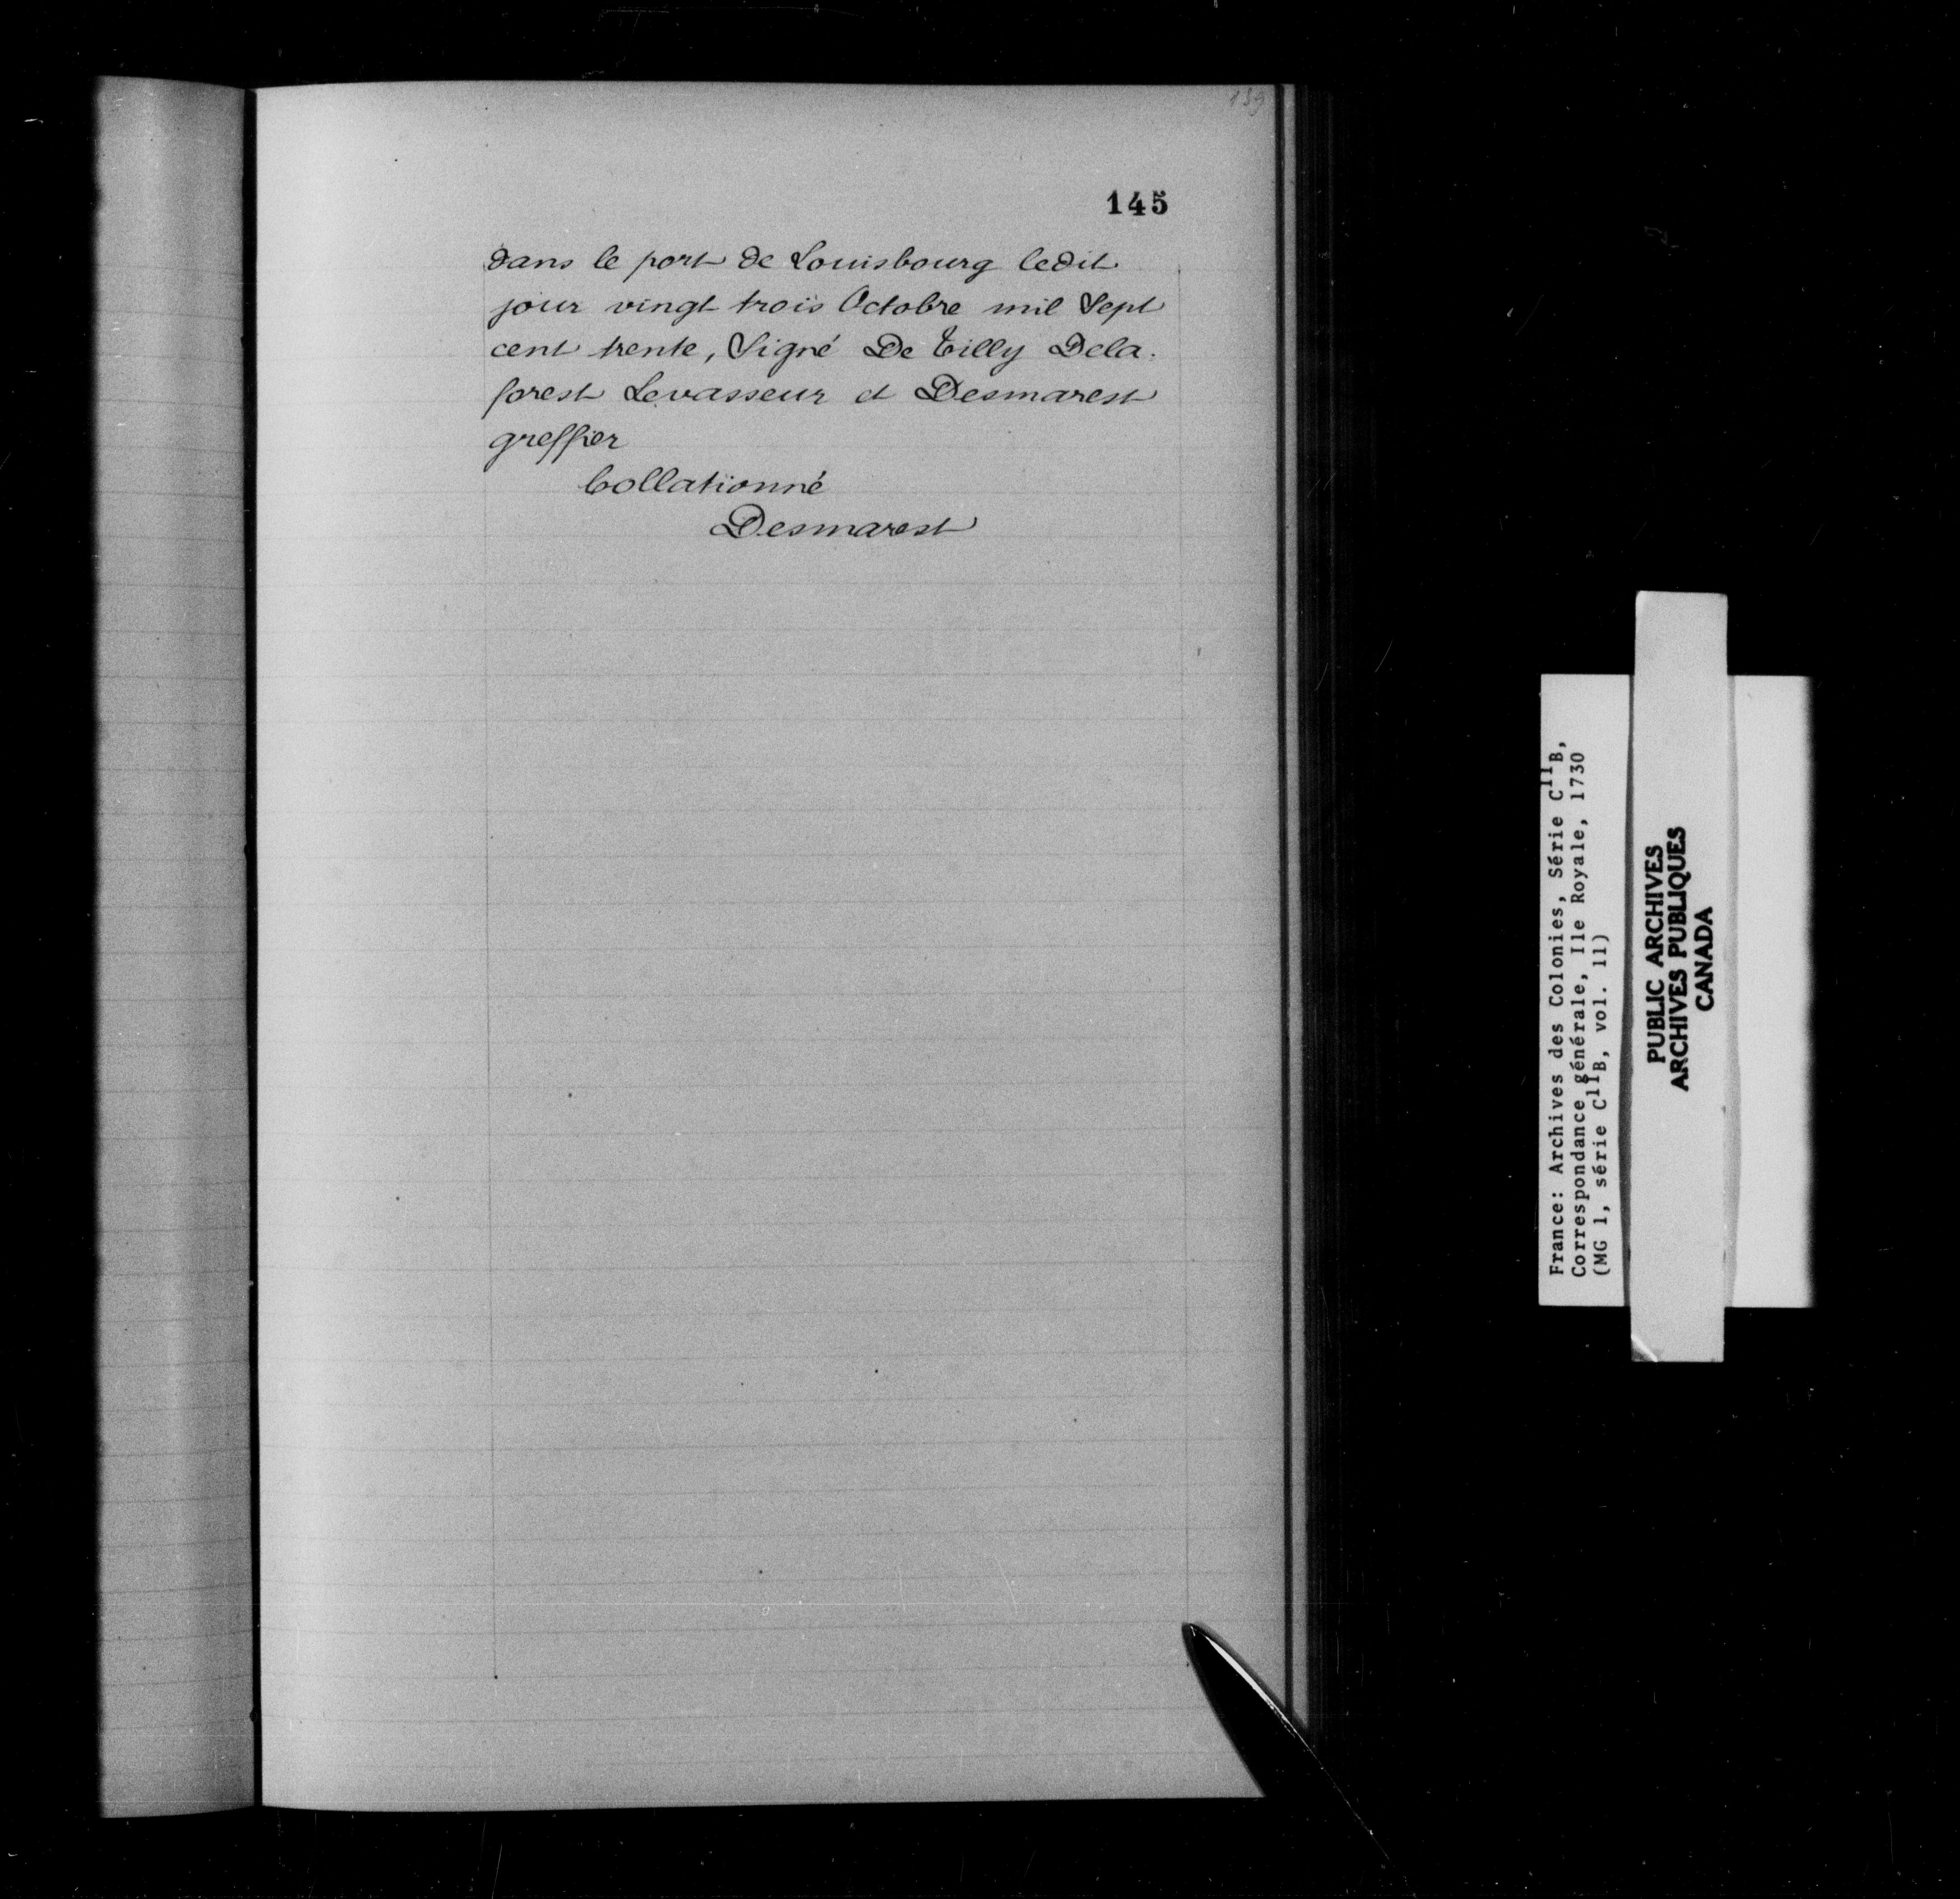 139
145
dans le port de Louisbourg ledit
jour vingt trois Octobre mil Sept
cent trente, Signé De Tilly Dela.
forest Levasseur et Desmarest
greffier
Collationné
Desmarest
France: Archives des Colonies, Série C11B,
Correspondance générale, Ile Royale, 1730
(MG 1, série C11B, vol. 11)
PUBLIC ARCHIVES
ARCHIVES PUBLIQUES
CANADA